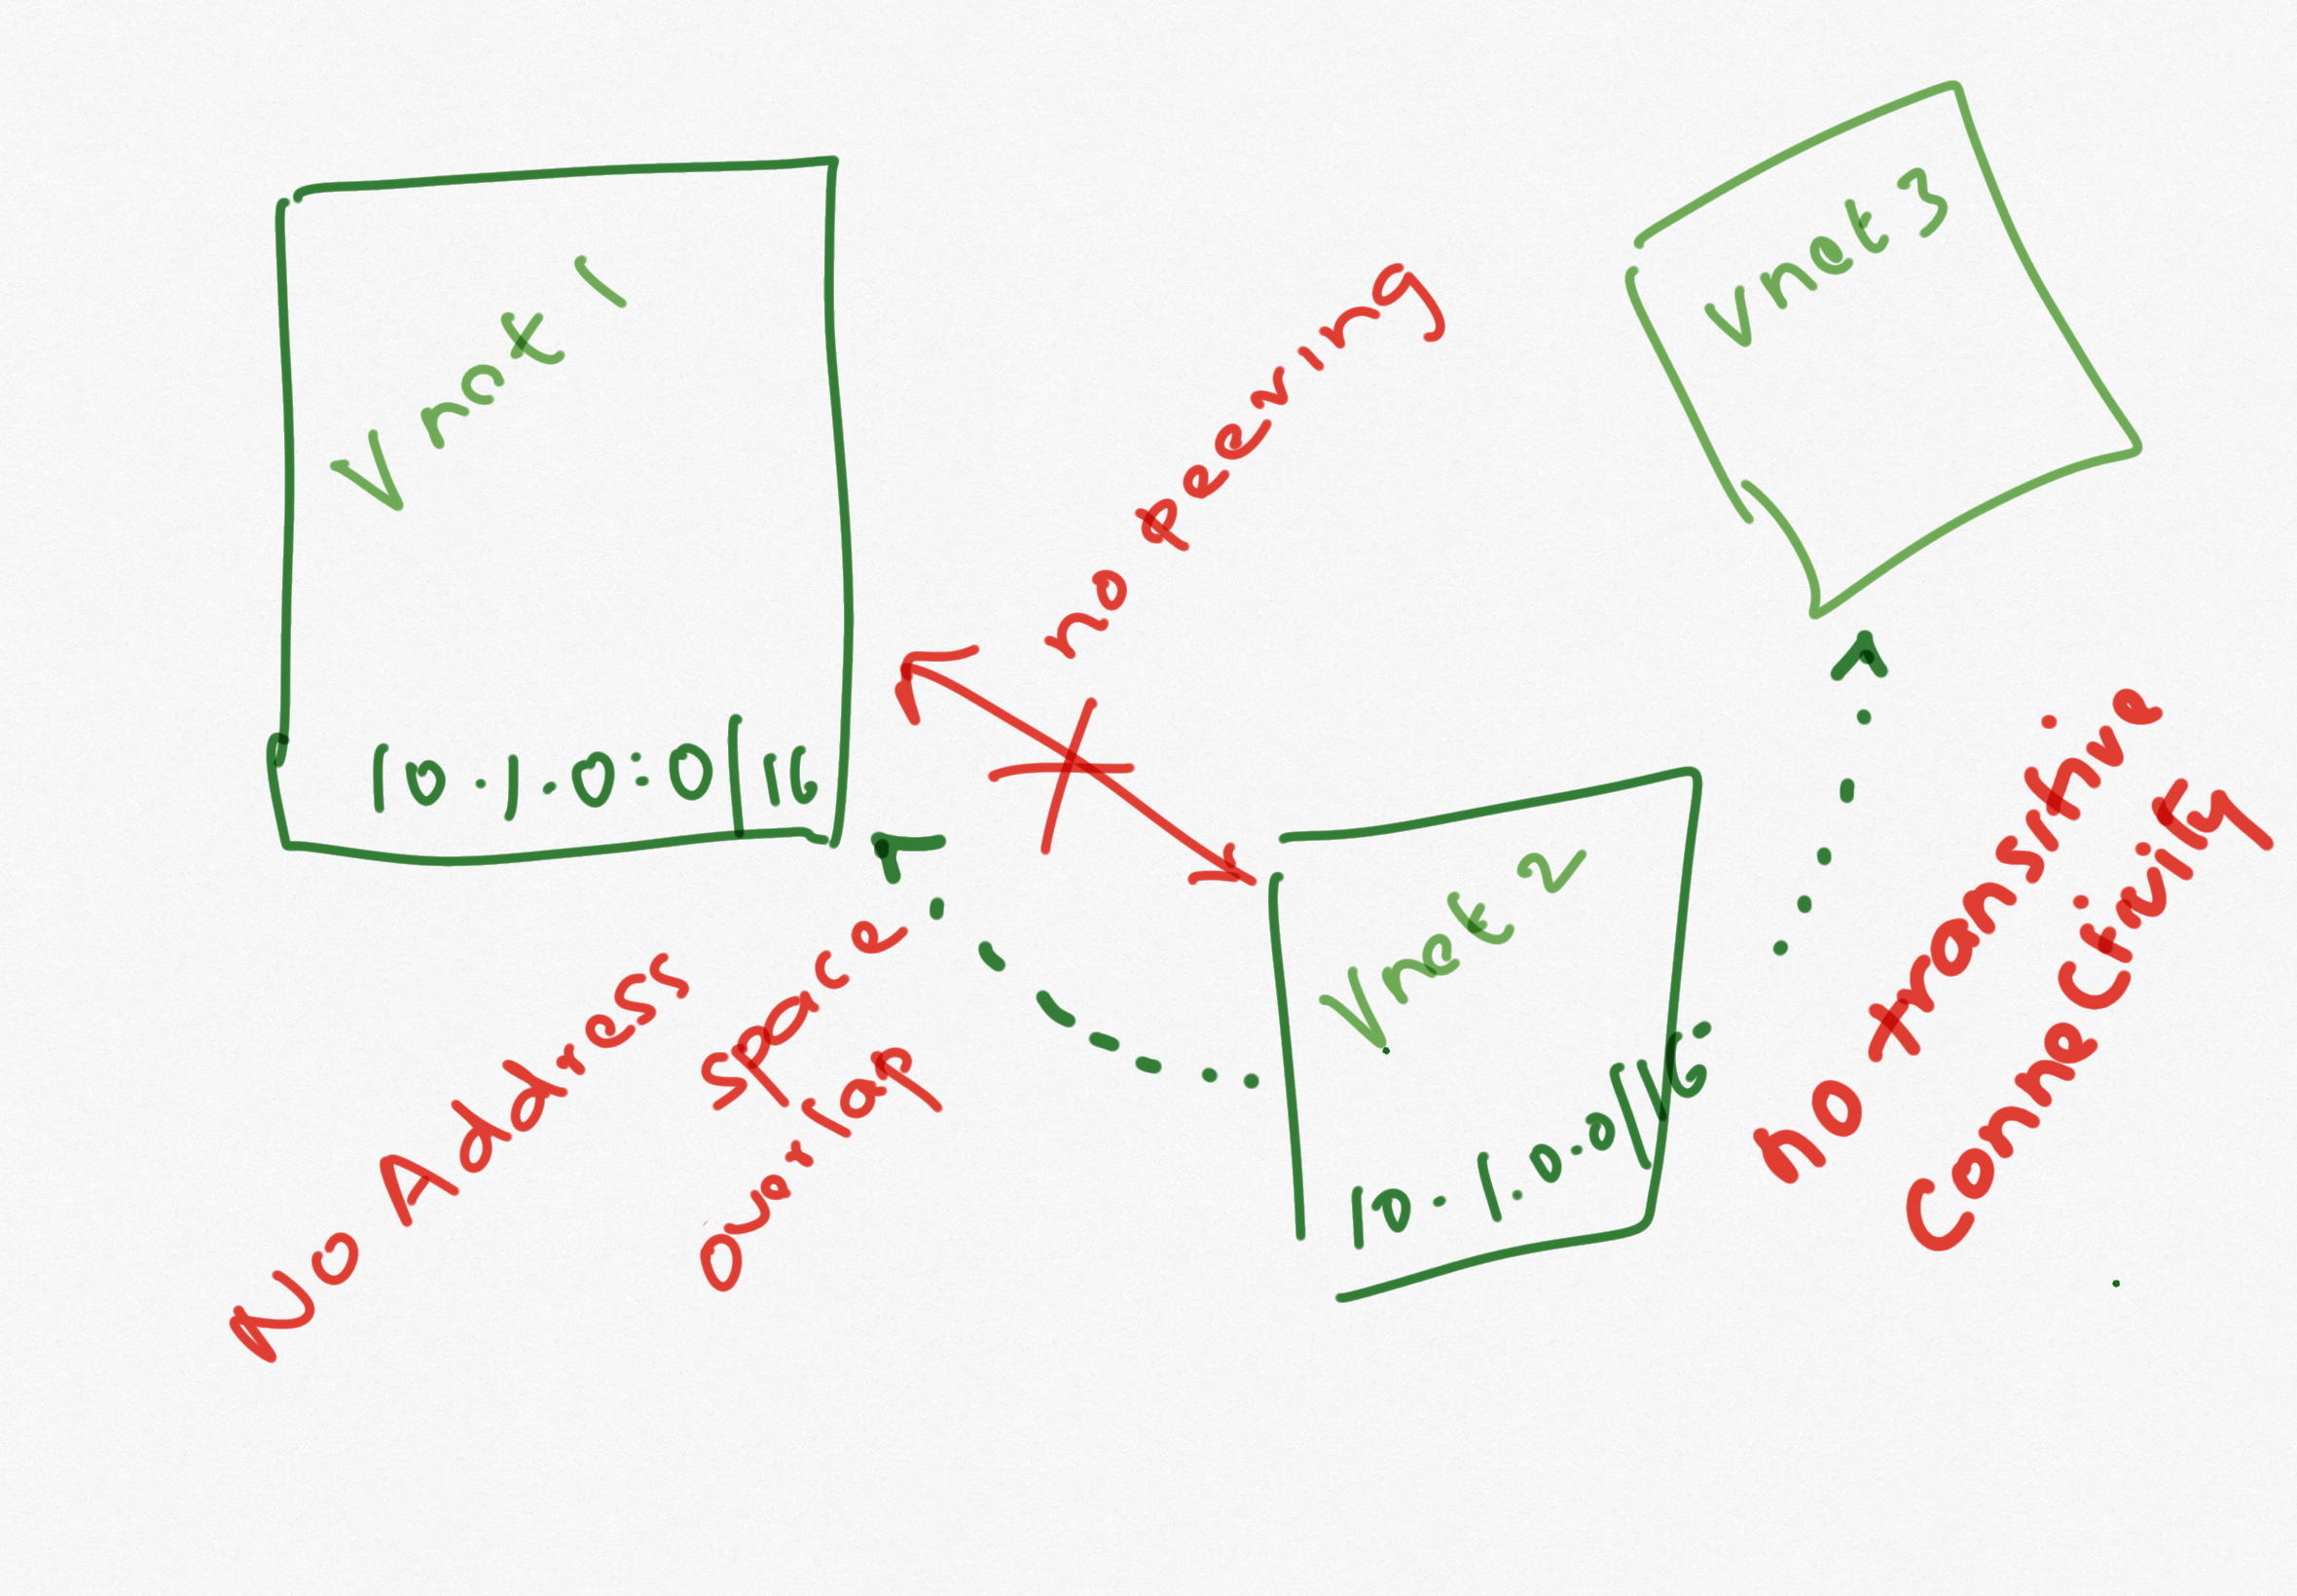 Vnet 1
10.1.0:0/16
no peering
Vnet 3
Vnet 2
10.1.0.0/16
No Address
space
overlap
no transitive
Connectivity